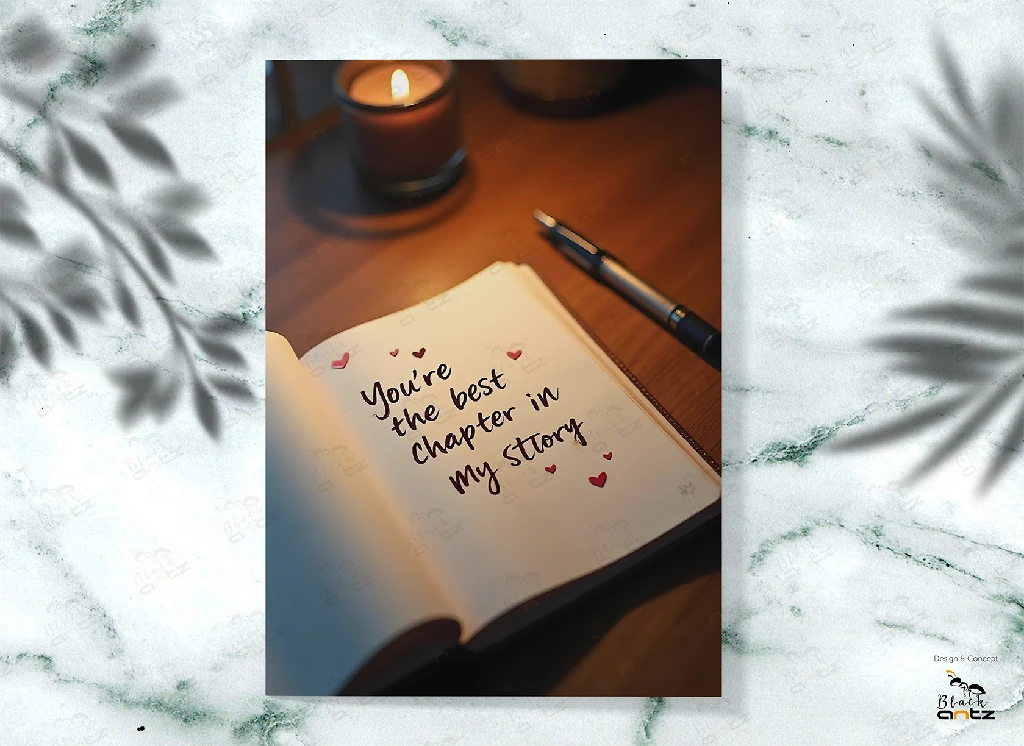 You're
the best
chapter in
my sttory
Design & Concept
Black
antz